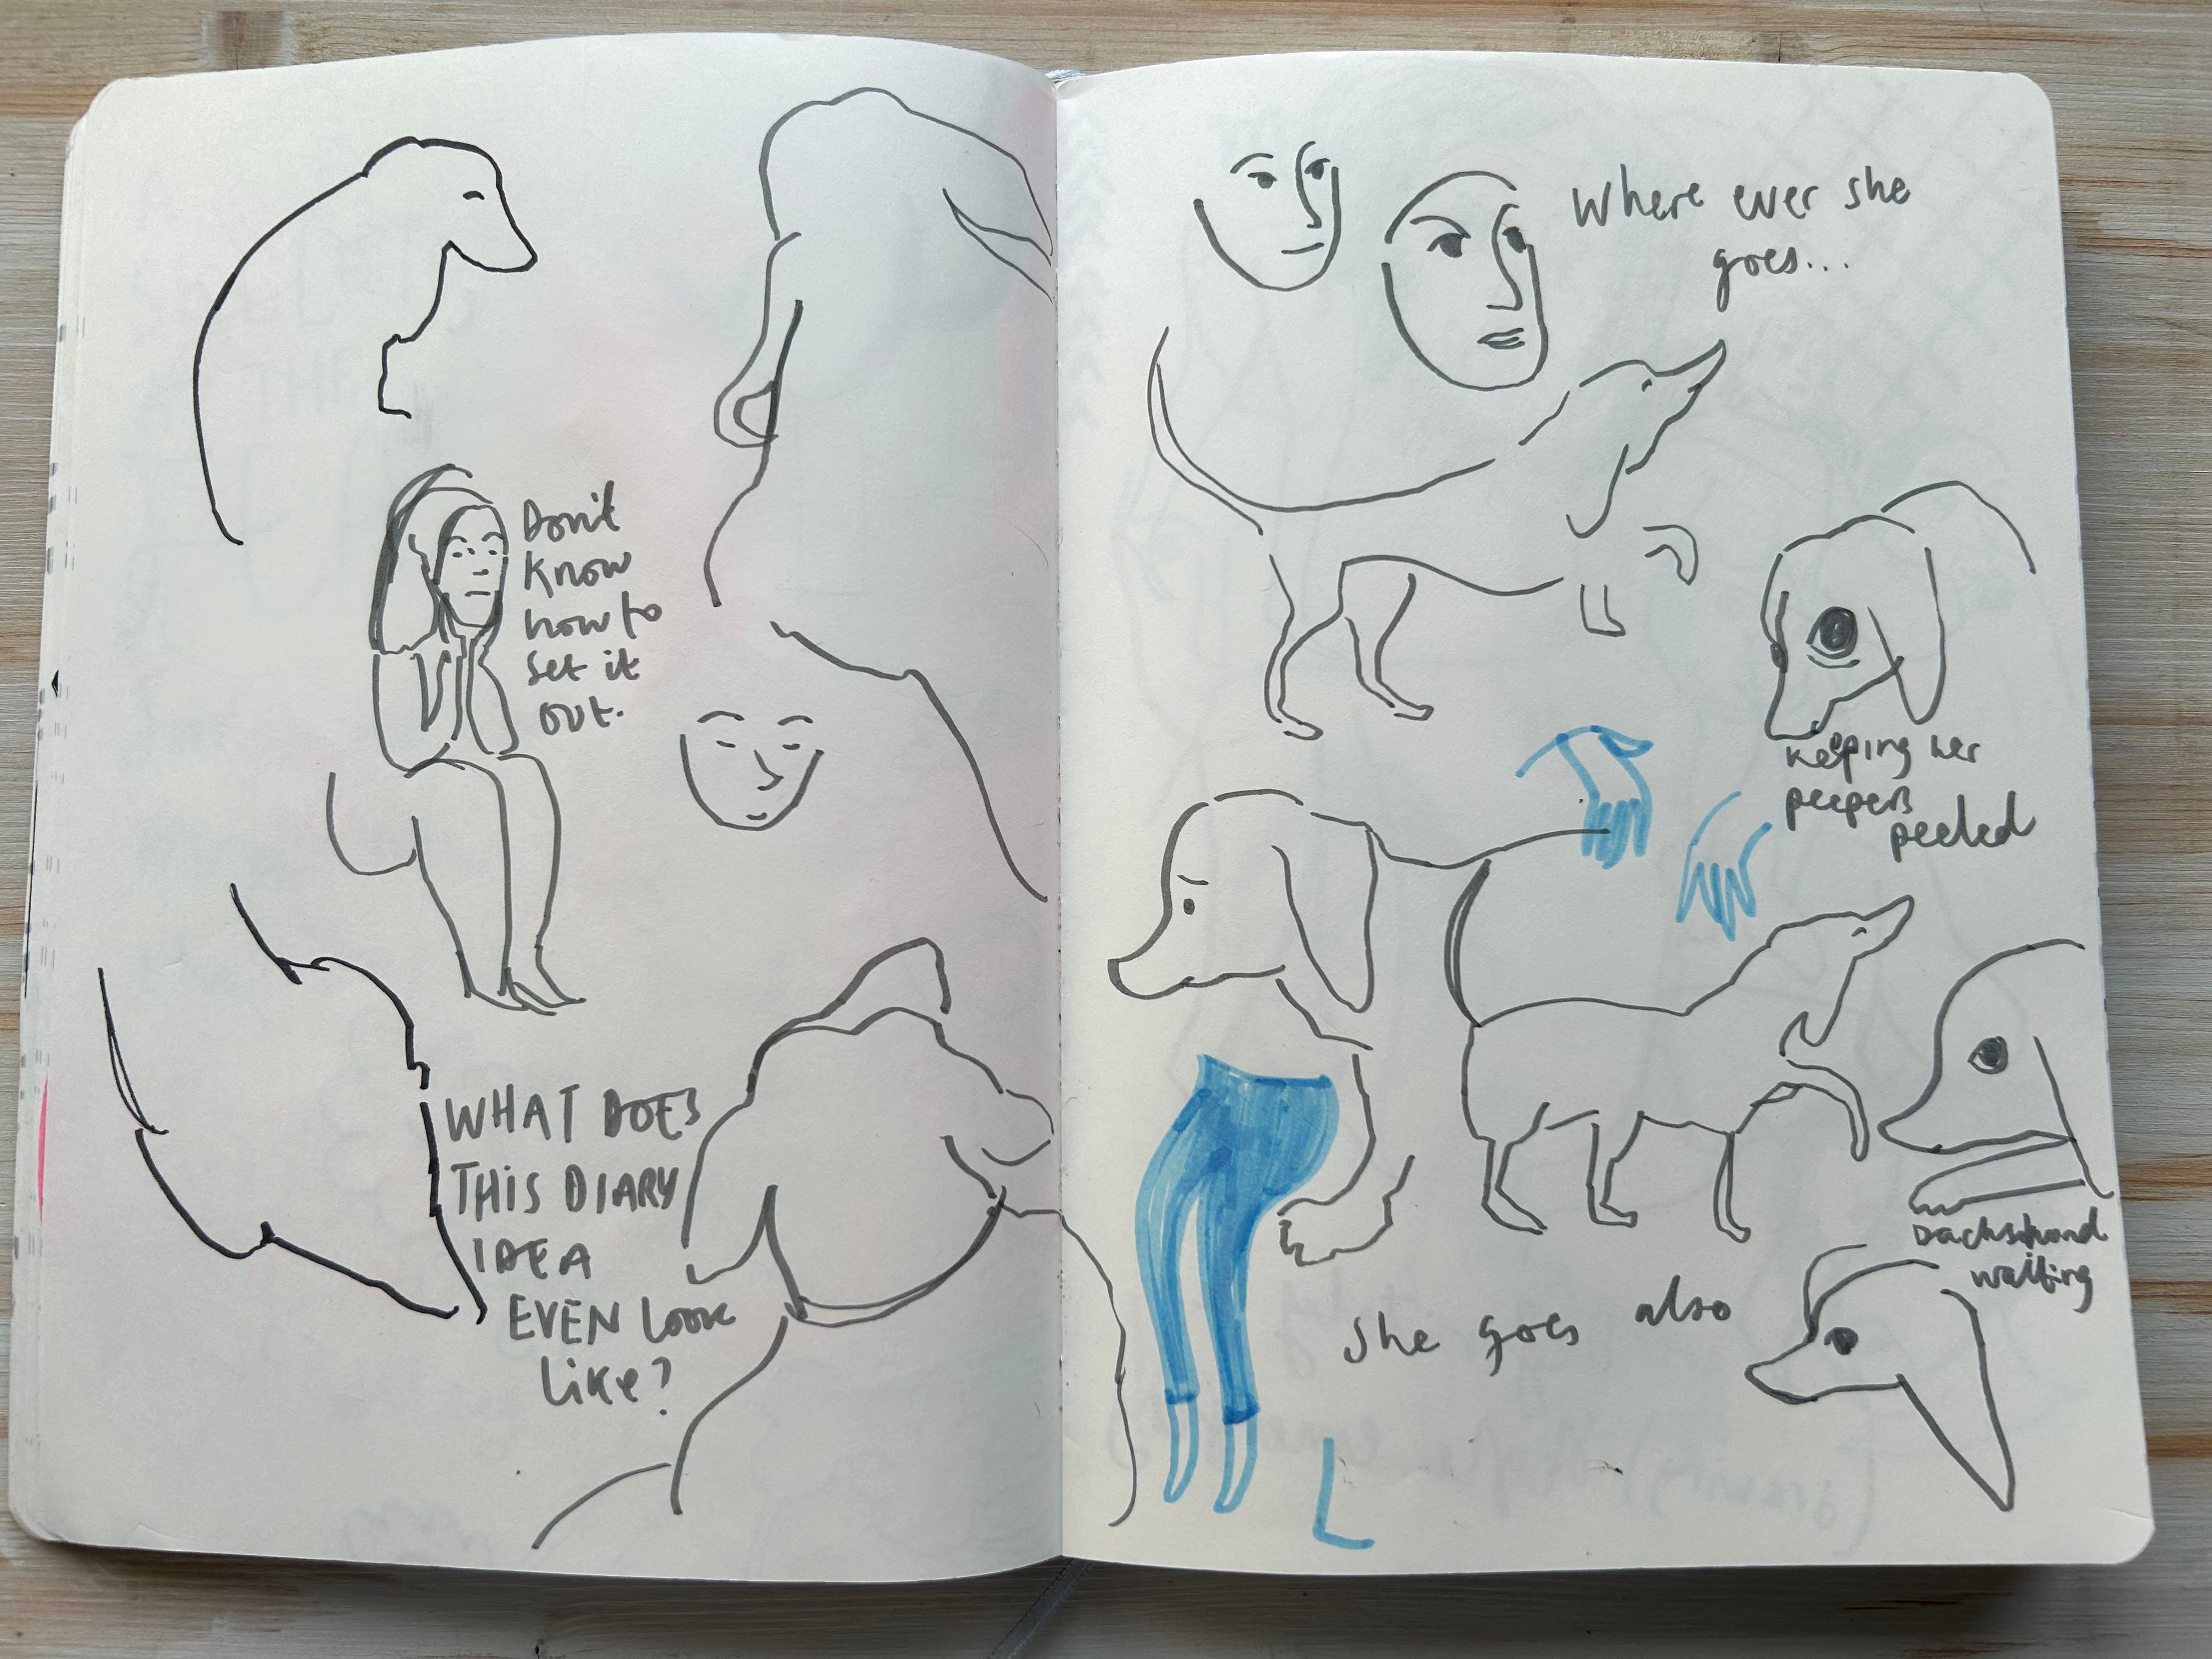 Don't
know
how to
set it
out.
WHAT DOES
THIS DIARY
IDEA
EVEN LOOK
like?
Where ever she
goes...
keeping her
peepers
peeled
Dachshond
waiting
She goes also